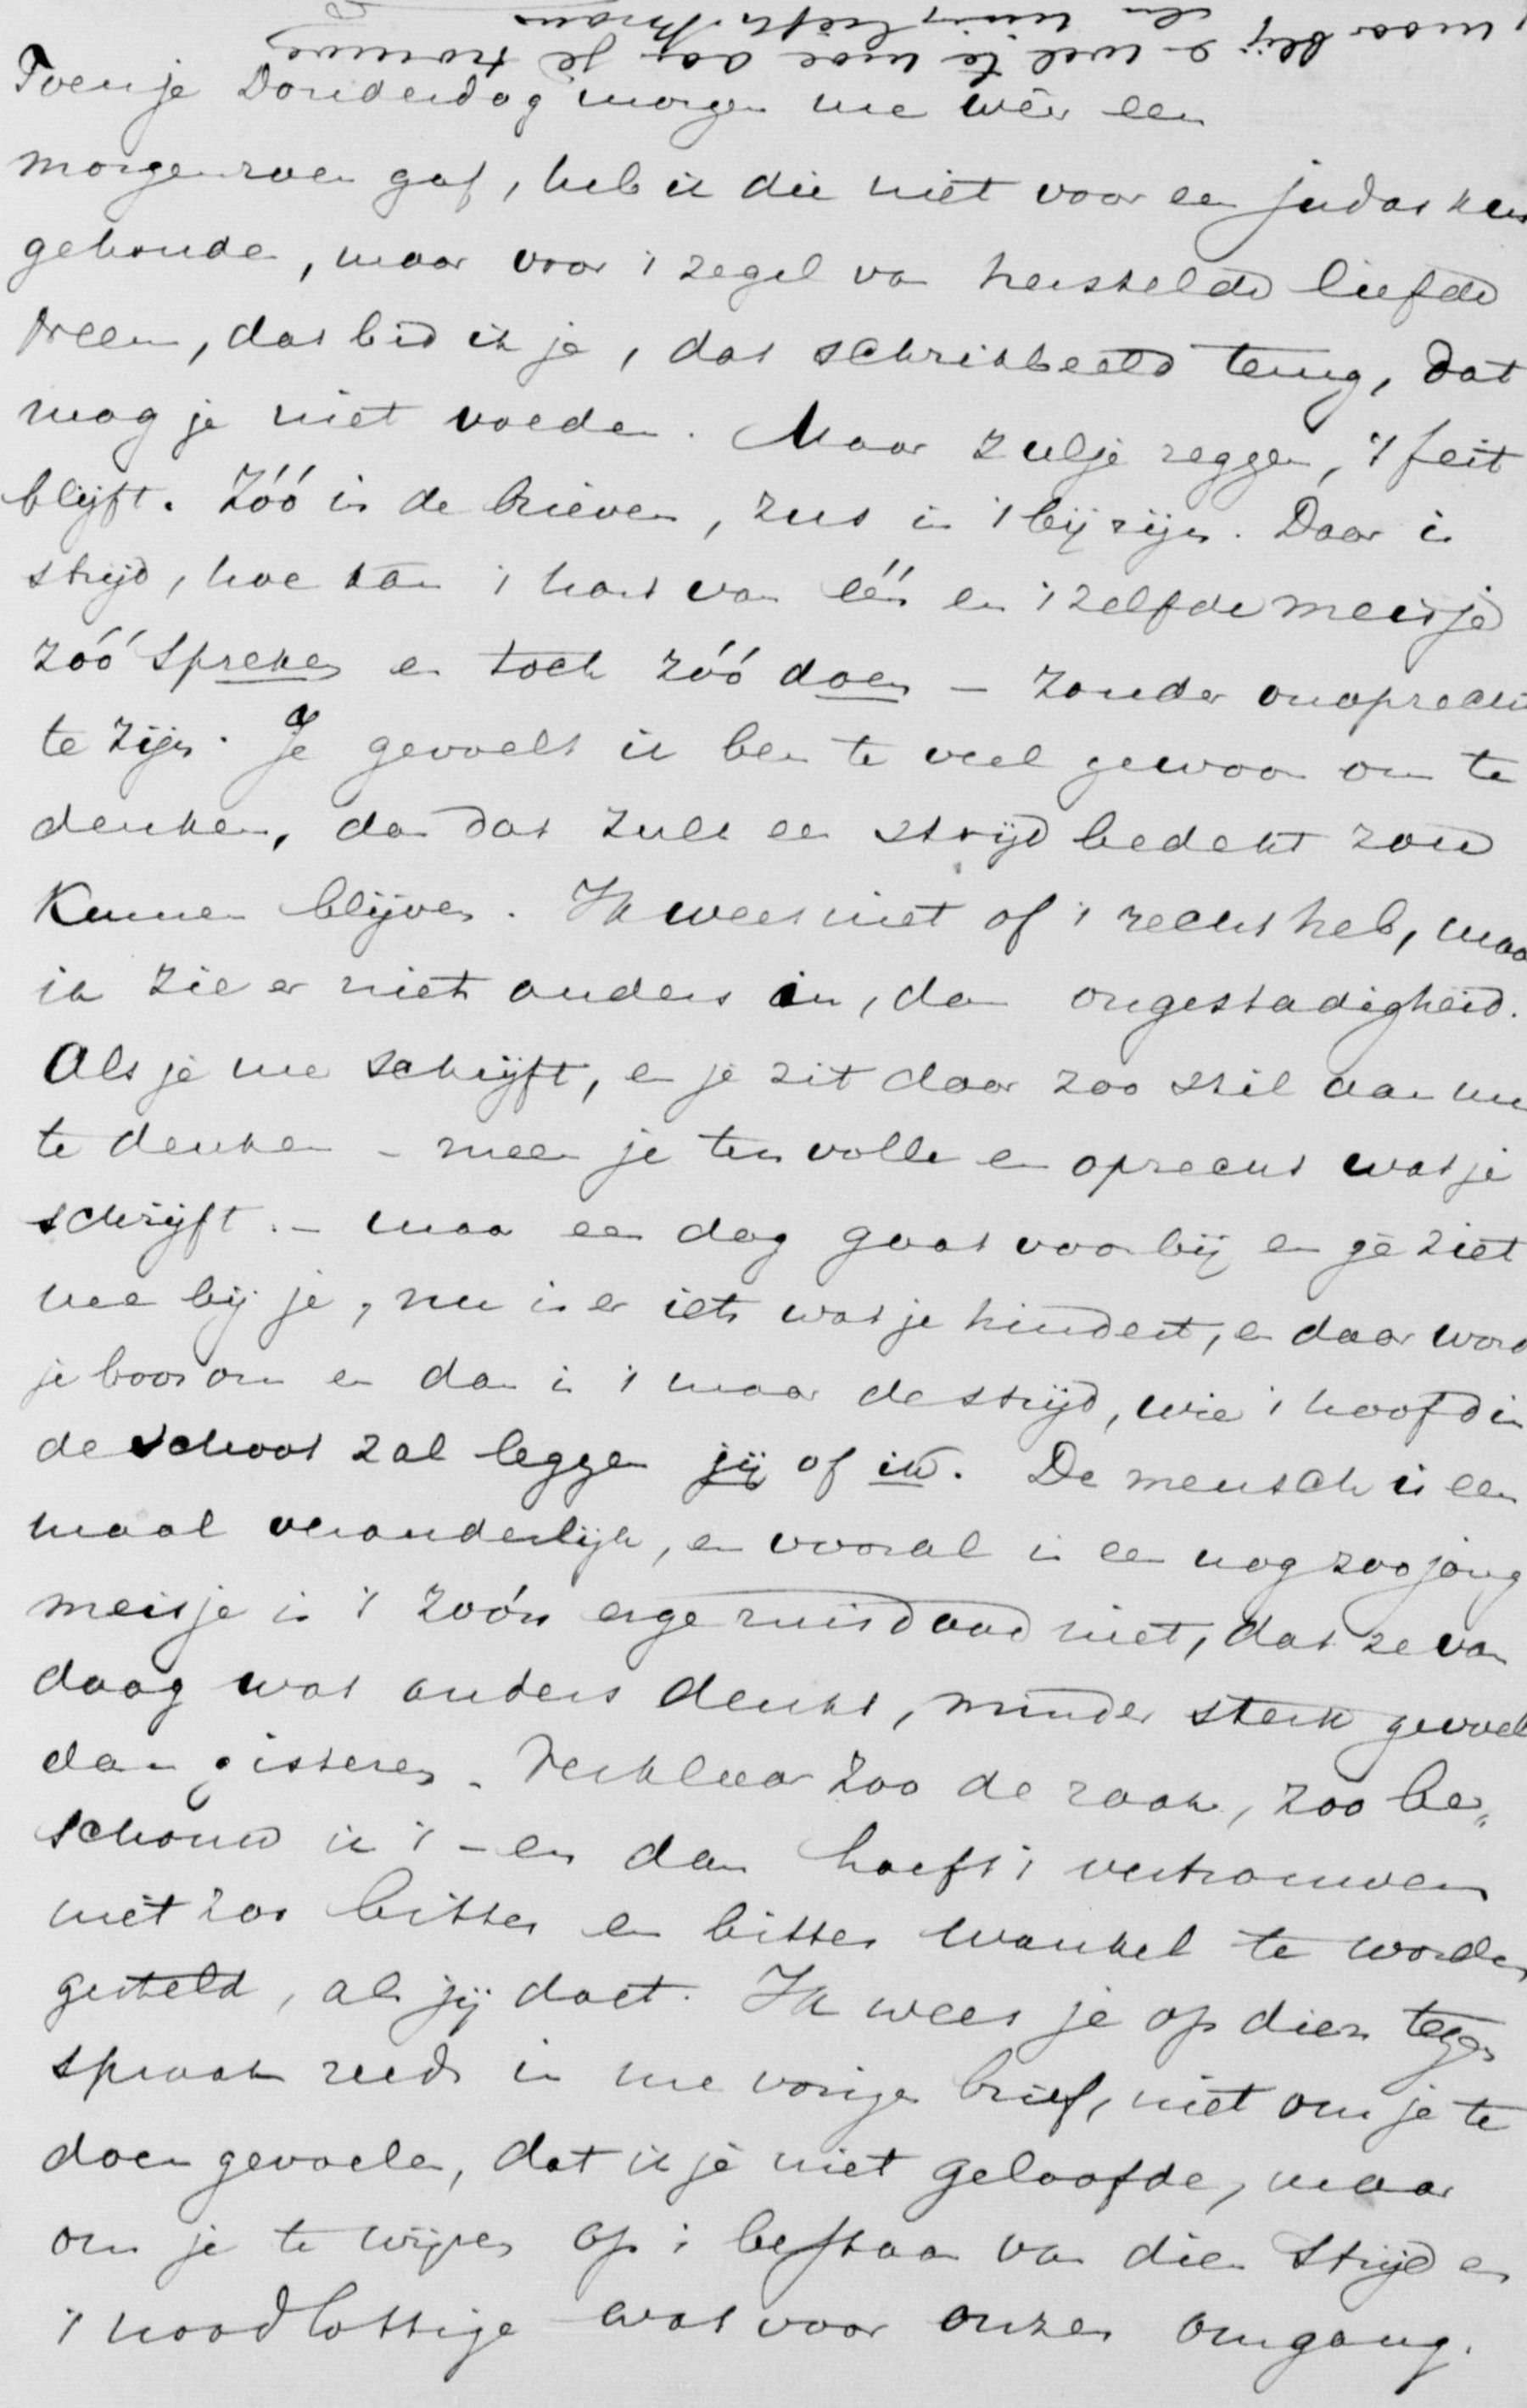 maar blijf en wel te moe dag je trouwe
en innig liefh. Bram
Toen je Donderdag morgen me wêer een
morgenzoen gaf, heb ik die niet voor een judaskus
gehouden, maar voor 't zegel van herstelde liefde
Neen, dat bid ik je, dat schrikbeeld terug, dat
mag je niet voeden. Maar zulje zeggen, 't feit
blijft. Zóó in de brieven, zus in 't bijzijn. Daar is
strijd, hoe kan 't hart van één en 't zelfde meisje
zóó spreken en toch zóó doen - zonder onoprecht
te zijn. Je gevoelt ik ben te veel gewoon om te
denken, dan dat zulk een strijd bedekt zou
kunnen blijven. Ik weet niet of 't recht heb, maar
ik zie er niets anders in, dan ongestadigheid.
Als je me schrijft, en je zit daar zoo stil aan me
te denken - meen je ten volle en oprecht wat je
schrijft. - maar een dag gaat voorbij en je ziet
me bij je, nu is er iets wat je hindert, en daar word
je boos om en dan is 't maar de strijd, wie 't hoofd in
de schoot zal leggen jij of ik. De mensch is een
maal veranderlijk, en vooral in een nog zoo jong
meisje is 't zóó'n erge misdaad niet, dat ze van
daag wat anders denkt, minder sterk gevoelt
dan gisteren. Verklaar zoo de zaak, zoo be„
schouw ik 't - en dan hoeft 't vertrouwen
niet zoo bitter en bitter wankel te worden
gesteld, als jij doet. Ik wees je op dien tegen
spraak reeds in me vorige brief, niet om je te
doen gevoelen, dat ik je niet geloofde, maar
om je te wijzen op 't bestaan van dien strijd en
't noodlottige wat voor onzen omgang.